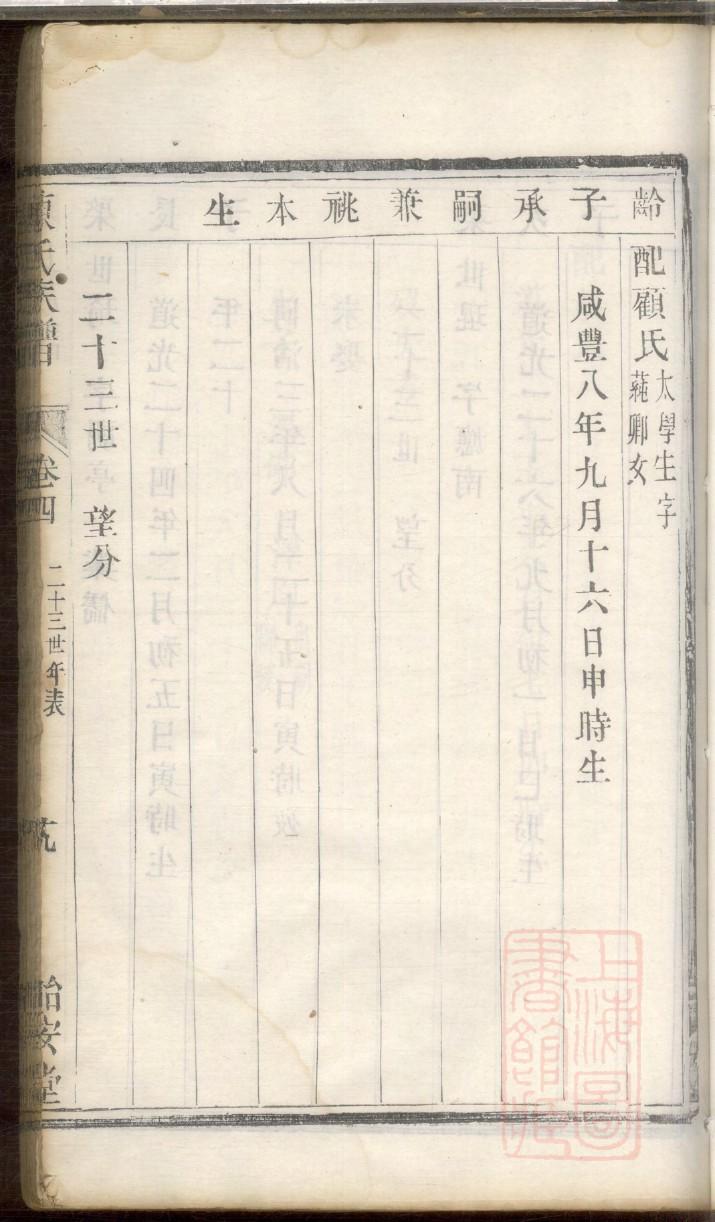 齡子承嗣兼祧本生
配顧氏太學生字
蕘卿女
咸豐八年九月十六日申時生
二十三世 望分
氏族譜
卷四
二十三世年表
怡安堂
上海圖
書館藏